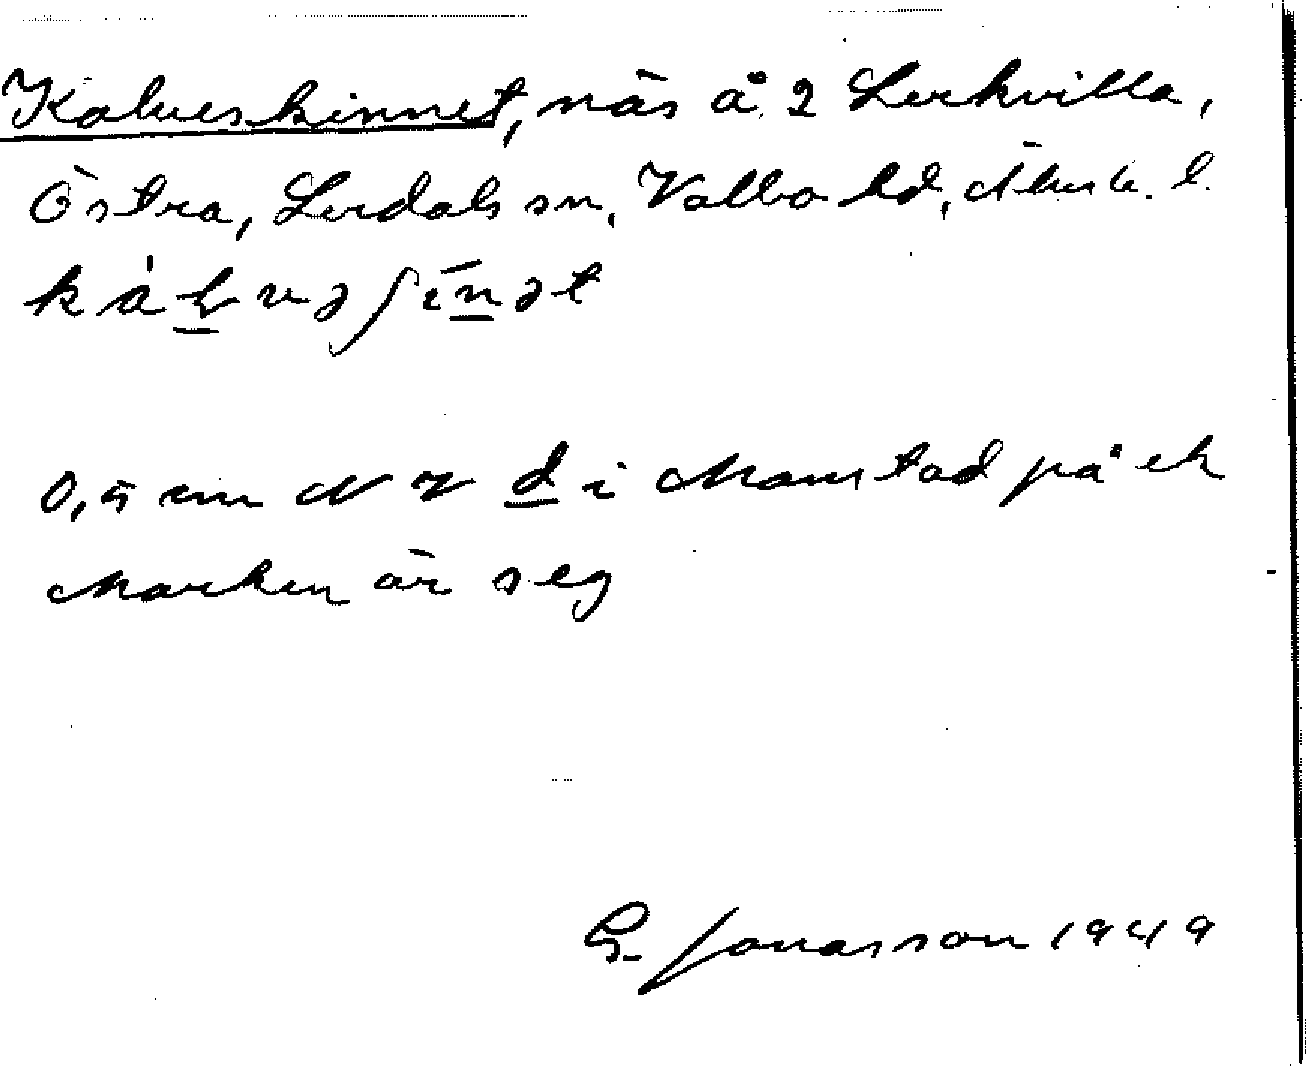 Kalveskinnet, näs å 2 Lerkvilla,
Östra, Lerdals sn, Valbo hd, Älvsb. l.
0,5 cm NV d i Monstad på ek
Marken är seg
G. Jonasson 1949